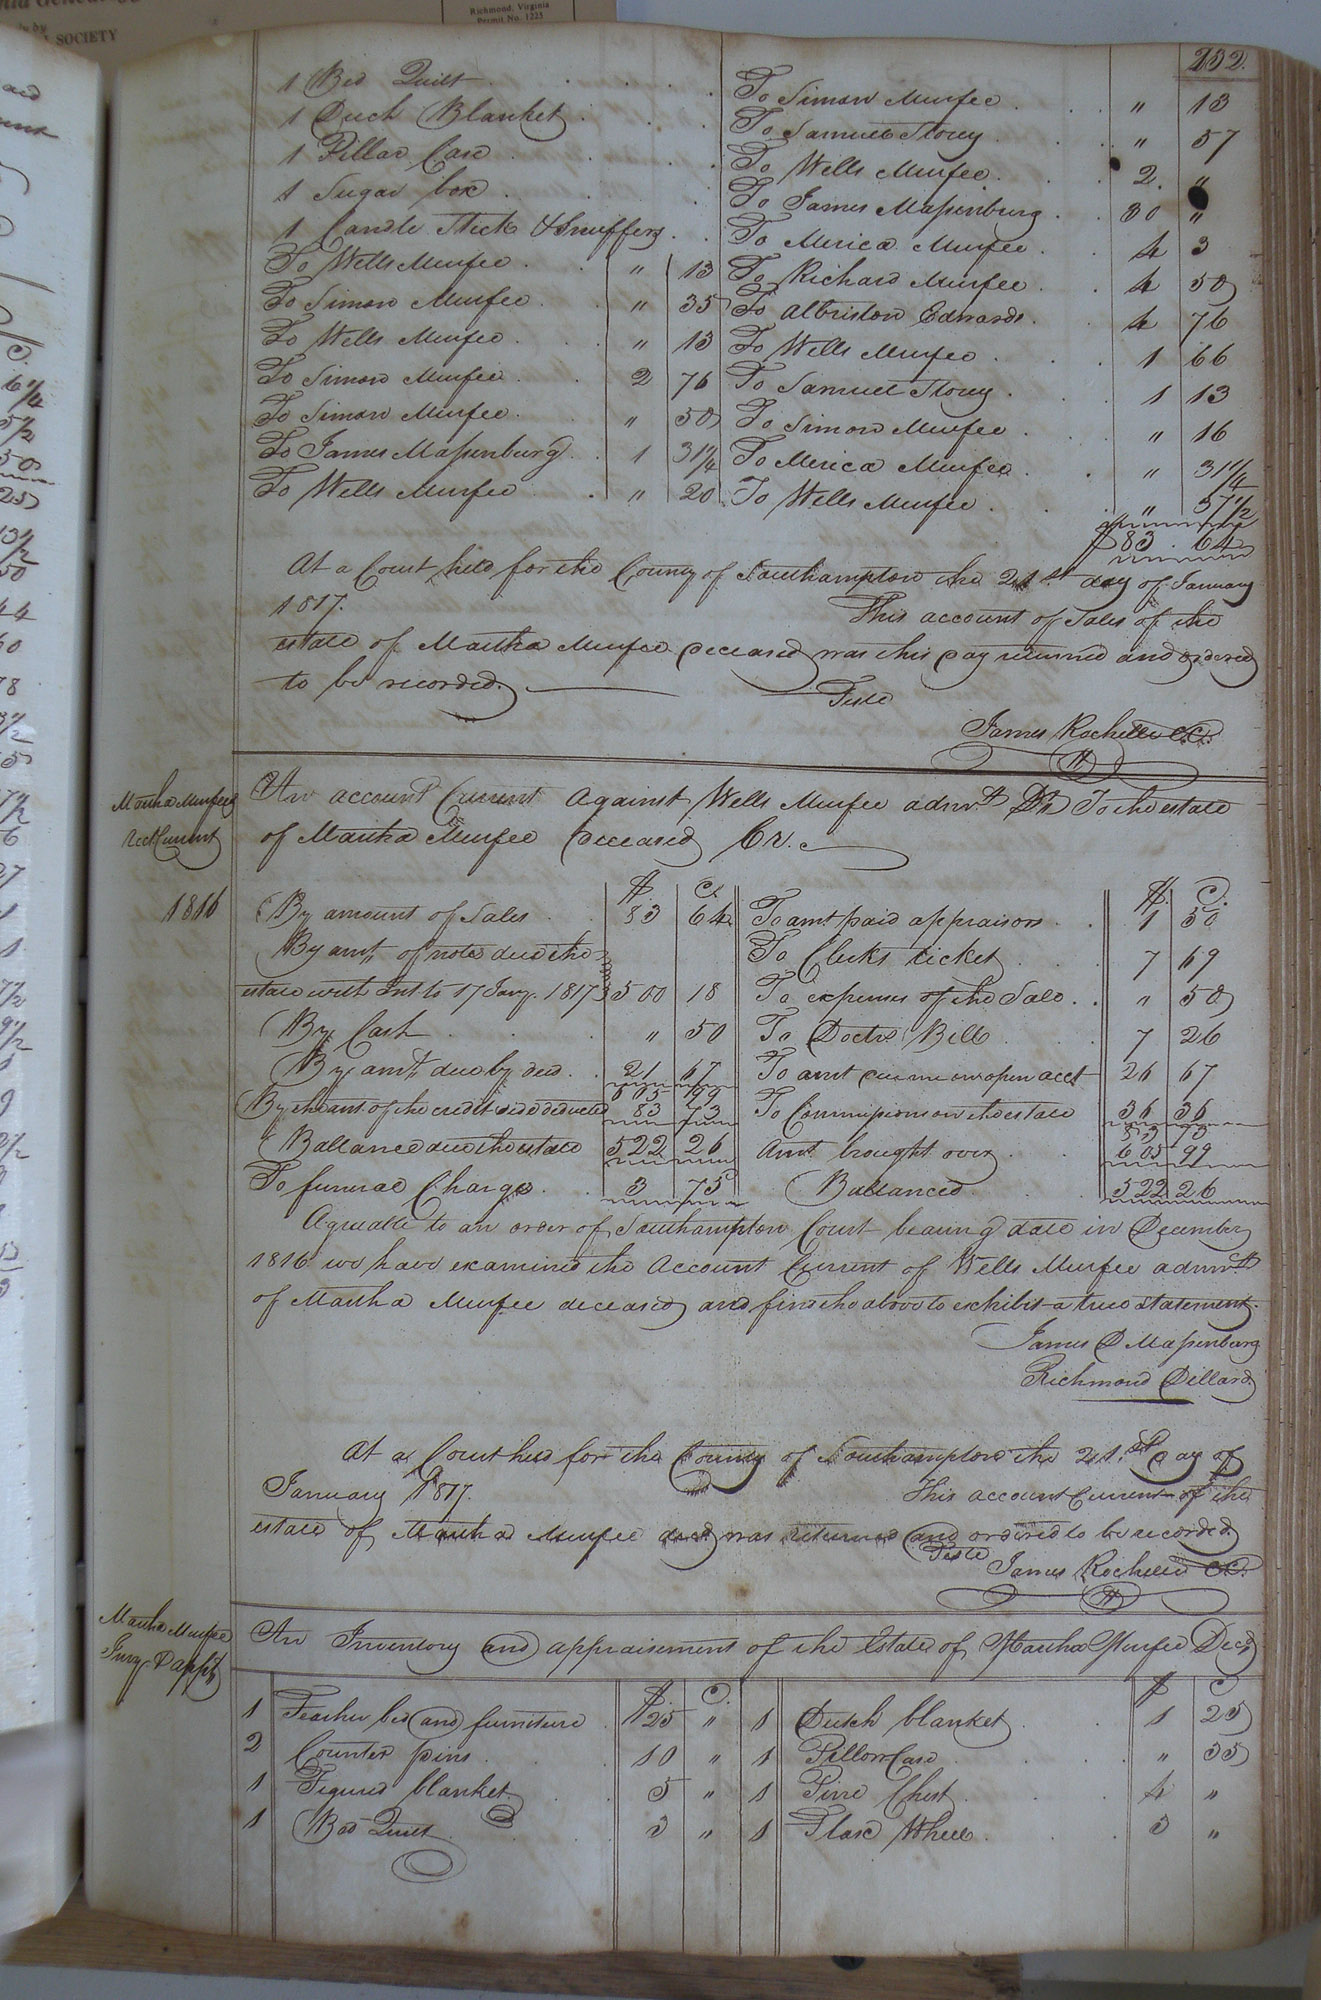 Richmond, Virginia
Permit No. 1225
SOCIETY
232.
1 Bed Quilt
1 Duch Blanket
1 Pillar Case
1 Sugar box
1 Candle Stick & Snuffers
To Wells Murfee " 13
To Simon Murfee " 35
To Wells Murfee " 13
To Simon Murfee 2 76
To Simon Murfee " 50
To James Massenburg 1 31 1/4
To Wells Murfee " 20
To Simon Murfee " 13
To Samuel Storey " 57
To Wells Murfee 2. "
To James Massenburg 30 "
To Merica Murfee 4 3
To Richard Murfee 4 50
To Albriston Edwards 4 76
To Wells Murfee 1 66
To Samuel Storey 1 13
To Simon Murfee " 16
To Merica Murfee " 31 1/4
To Wells Murfee " 37 1/2
$83. 64
At a Court held for the County of Southampton the 21st day of January
1817. This account of Sales of the
estate of Martha Murfee deceased was this day returned and ordered
to be recorded.
Teste
James Rochelle CC.
Martha Murfee
Acct Current
An account Current Against Wells Murfee admr. Dr. To the estate
of Martha Murfee deceased Cr.
1816
$. C.
By amount of Sales 83 64
By amt. of note due the
estate with Int to 17 Jany. 1817 500 18
By Cash " 50
By amt. due by decd. 21 67
605 99
By the amt. of the credit side deducted 83 73
Ballance due the estate 522 26
To funeral Charges 3 75
$. C.
To amt paid appraisors 1 50
To Clerks ticket 7 69
To expenses of the Sale " 50
To Doctrs Bill 7 26
To amt due me on open acct 26 67
To Commissions on the estate 36 36
83 73
Amt. brought over 605 99
Ballanced 522 26
Agreeable to an order of Southampton Court bearing date in December
1816 we have examined the Account Current of Wells Murfee admr.
of Martha Murfee deceased and find the above to exhibit a true Statement.
James D Massenburg
Richmond Dillard.
At a Court held for the County of Southampton the 21.st day of
January 1817. This account Current of the
estate of Martha Murfee decd was returned and ordered to be recorded
Teste
James Rochelle CC.
Martha Murfee
Invy. & appt
An Inventory and appraisement of the Estate of Martha Murfee Decd
$. C.
1 Feather bed and furniture $25 "
2 Counter pins 10 "
1 Figured blanket 5 "
1 Bed Quilt 3 "
$ C
1 Dutch blanket 1 25
1 Pillow Case " 35
1 Pine Chest 4 "
1 Flax Wheel 3 "